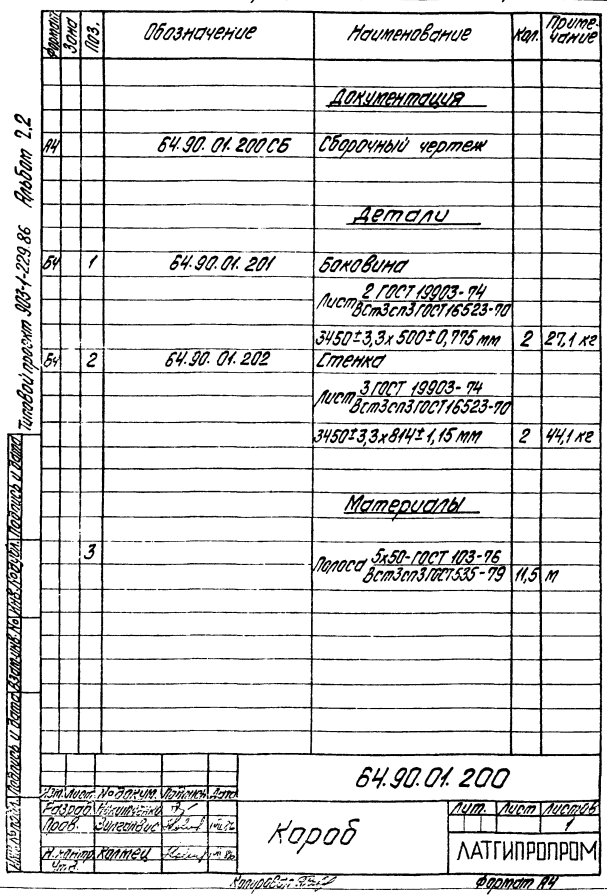 Формат Зона Поз. Обозначение Наименование Кол. Примечание
Документация
А4 64.90.01.200СБ Сборочный чертеж
Детали
БЧ 1 64.90.01.201 Боковина
Лист 2 ГОСТ 19903-74
ВСт3сп3 ГОСТ 16523-70
3450±3,3х500±0,775 мм 2 27,1 кг
БЧ 2 64.90.01.202 Стенка
Лист 3 ГОСТ 19903-74
ВСт3сп3 ГОСТ 16523-70
3450±3,3х814±1,15 мм 2 44,1 кг
Материалы
3 Полоса 5х50-ГОСТ 103-76
ВСт3сп3 ГОСТ 535-79 11,5 м
Типовой проект 903-1-229.86 Альбом 2.2
Инв.№ подл. Подпись и дата Взам.инв.№ Инв.№ дубл. Подпись и дата
64.90.01.200
Изм. Лист № докум. Подпись Дата
Разраб.
Пров.
Н.контр. Калмец
Утв.
Короб
Лит. Лист Листов
1
ЛАТГИПРОПРОМ
Копировал
Формат А4